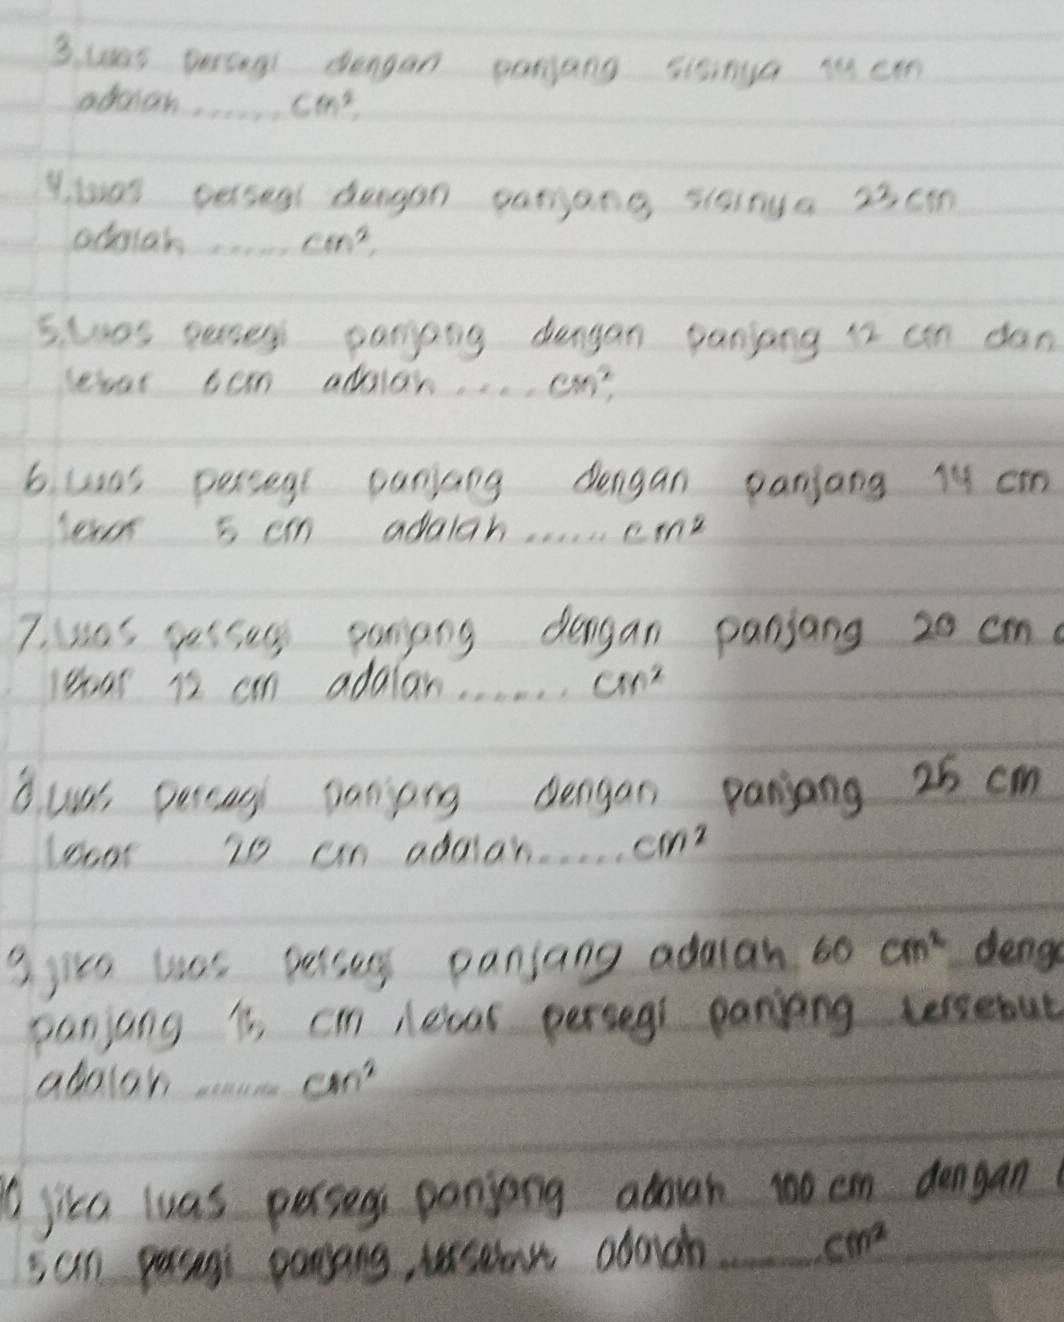 3. Luas persegi dengan panjang sisinya 14 cm
adalah ...... cm²,
4. Luas persegi dengan panjang sisinya 23 cm
adalah ...... cm²,
5. Luas persegi panjang dengan panjang 12 cm dan
lebar 6 cm adalah .... cm²,
6. Luas persegi panjang dengan panjang 14 cm
lebar 5 cm adalah ...... cm²
7. Luas persegi panjang dengan panjang 20 cm
lebar 12 cm adalah ...... cm²
8. Luas persegi panjang dengan panjang 25 cm
lebar 20 cm adalah ..... cm²
9. jika luas persegi panjang adalah 60 cm² deng
panjang 15 cm lebar persegi panjang tersebut
adalah ....... cm²
10 jika luas persegi panjang adalah 100 cm dengan
5 cm persegi panjang, tersebut adalah ...... cm²